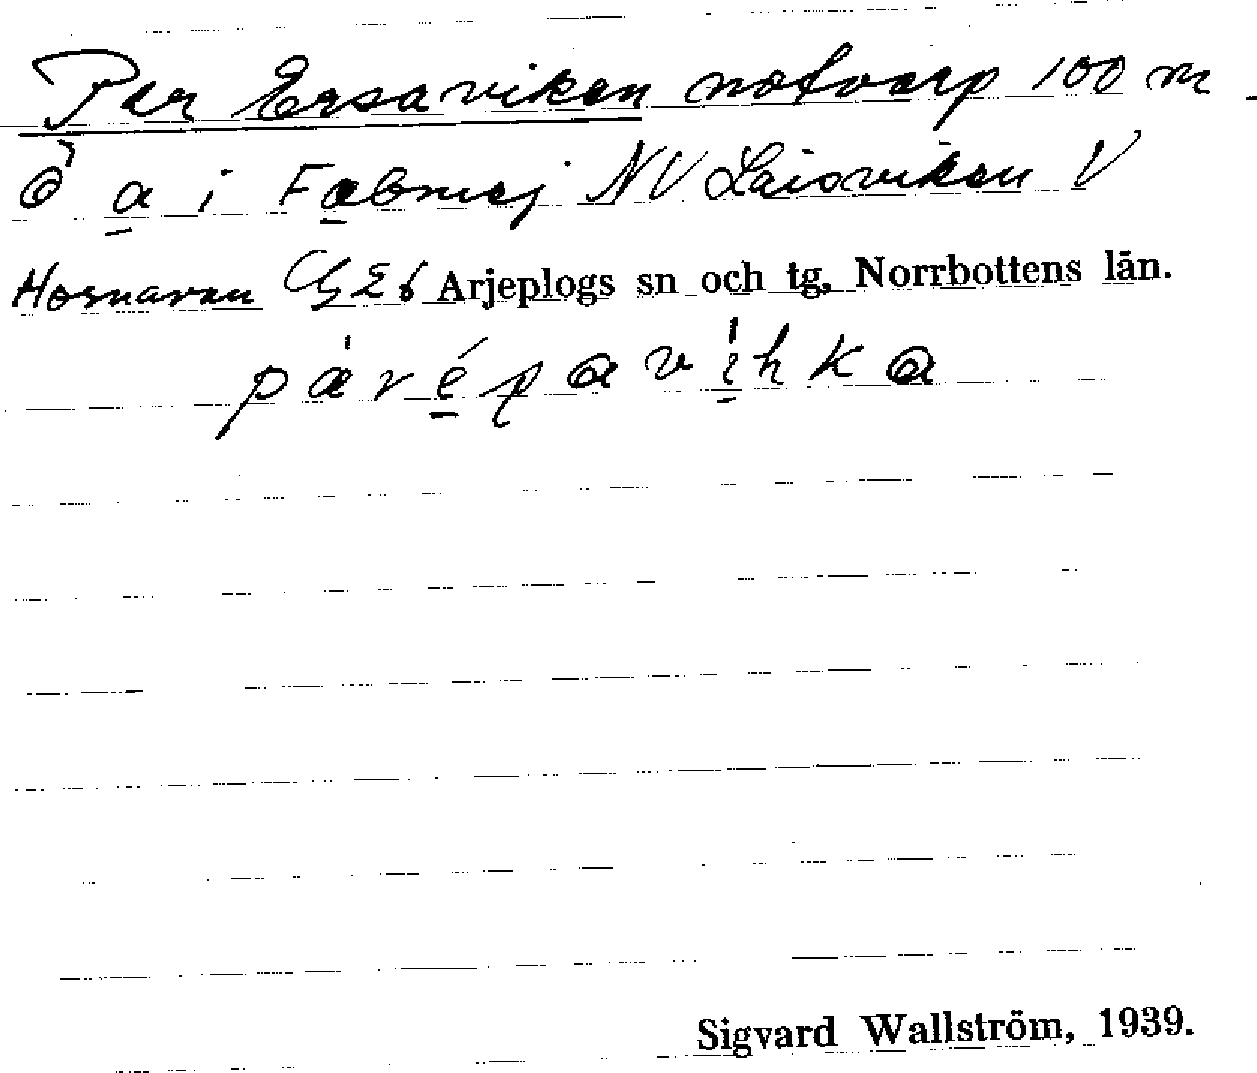 Per Ersaviken notvarp 100 m
a i Fæbmej NV Laisviken V
Hornavan Arjeplogs sn och tg, Norrbottens län.
Sigvard Wallström, 1939.